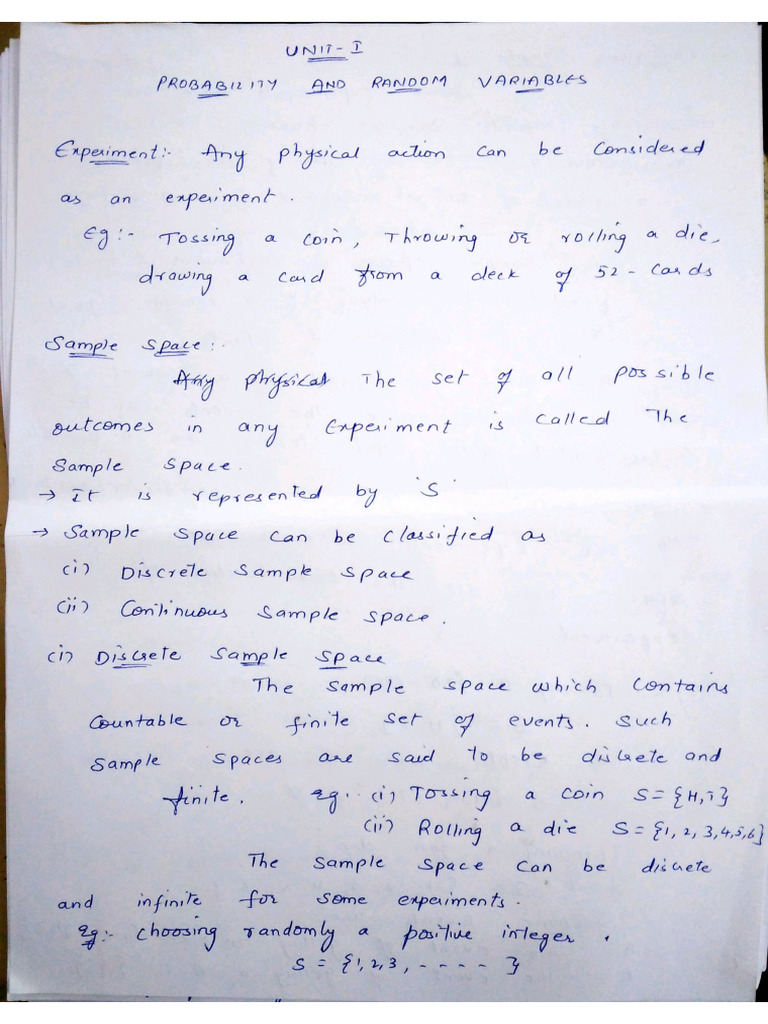 UNIT-I
PROBABILITY AND RANDOM VARIABLES
Experiment:- Any physical action can be considered
as an experiment.
Eg:- Tossing a coin, Throwing or rolling a die,
drawing a card from a deck of 52-cards
Sample Space:-
Any physical The set of all possible
outcomes in any Experiment is called The
Sample space.
→ It is represented by 'S'
→ Sample space can be classified as
(i) Discrete sample space
(ii) Continuous sample space.
(i) Discrete Sample Space
The sample space which contains
countable or finite set of events. Such
sample spaces are said to be discrete and
finite. eg. (i) Tossing a coin S={H,T}
(ii) Rolling a die S={1,2,3,4,5,6}
The sample space can be discrete
and infinite for some experiments.
eg:- choosing randomly a positive integer.
S = {1,2,3,-----}